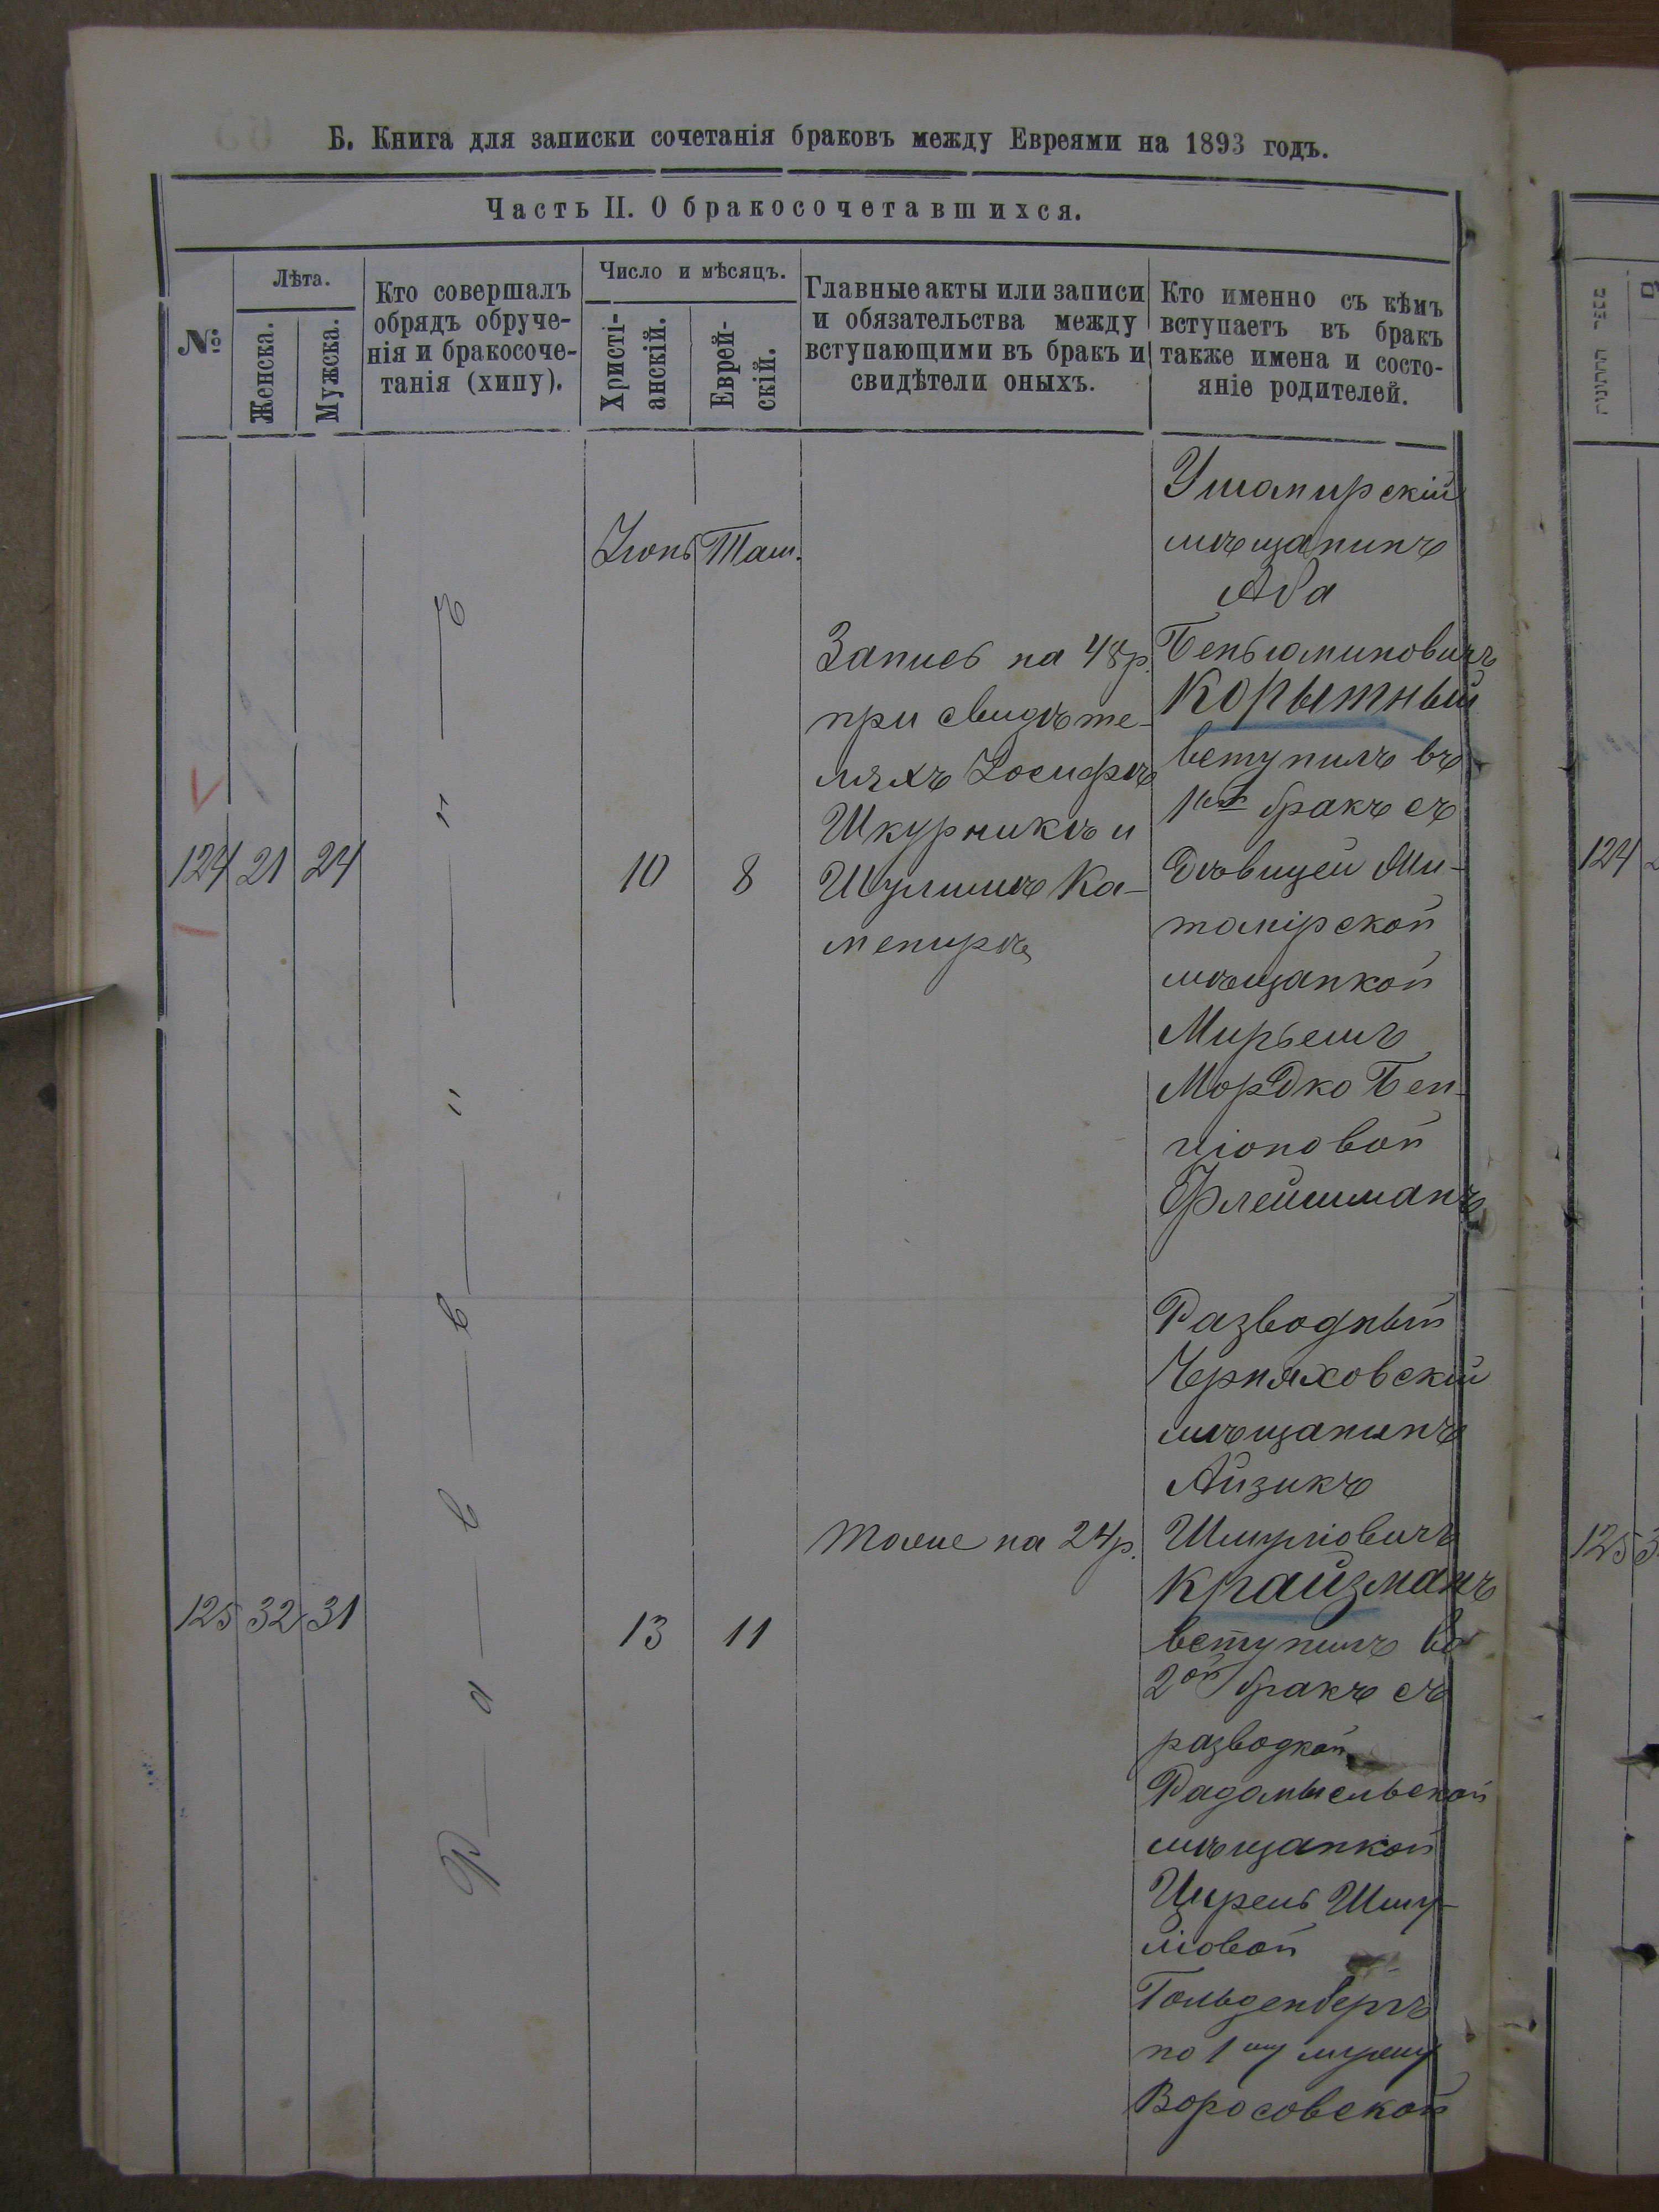 Б. Книга для записки сочетанія браковъ между Евреями на 1893 годъ.
Часть II. О бракосочетавшихся.
№
Лѣта.
Женска.
Мужска.
Кто совершалъ
обрядъ обруче-
нія и бракосоче-
танія (хипу).
Число и мѣсяцъ.
Христі-
анскій.
Еврей-
скій.
Главные акты или записи
и обязательства между
вступающими въ бракъ и
свидѣтели оныхъ.
Кто именно съ кѣмъ
вступаетъ въ бракъ
также имена и состо-
яніе родителей.
Р а в в " " ъ
124 21 24
Іюнь Там.
10 8
Запись на 48 р.
при свидѣте-
ляхъ Іосифѣ
Шкурникѣ и
Шулимѣ Ка-
менирѣ
Ушомирскій
мѣщанинъ
Аба
Беньюминовичъ
Корытный
вступилъ въ
1ый бракъ съ
дѣвицей Жи-
томірской
мѣщанкой
Мирьемъ
Мордко Бен-
ціоновой
Флейшманъ
125 32 31
13 11
Тоже на 24 р.
Разводный
Черняховскій
мѣщанинъ
Айзикъ
Шмуліовичъ
Крайзманъ
вступилъ во
2ой бракъ съ
разводкой
Радомысльской
мѣщанкой
Цирель Шму-
ліовой
Гольденбергъ
по 1му мужу
Воросовской
124
125 3